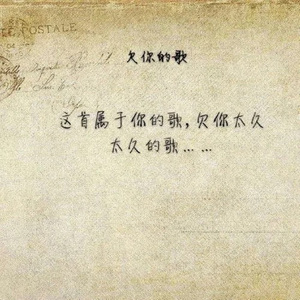 POSTALE
欠你的歌
这首属于你的歌,欠你太久
太久的歌... ...